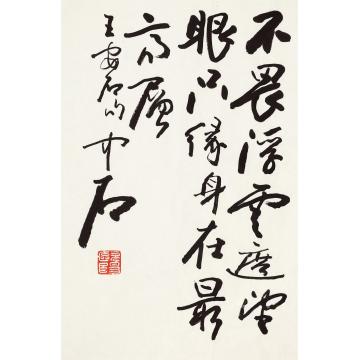 不畏浮云遮望
眼只缘身在最
高层
王安石句 中石